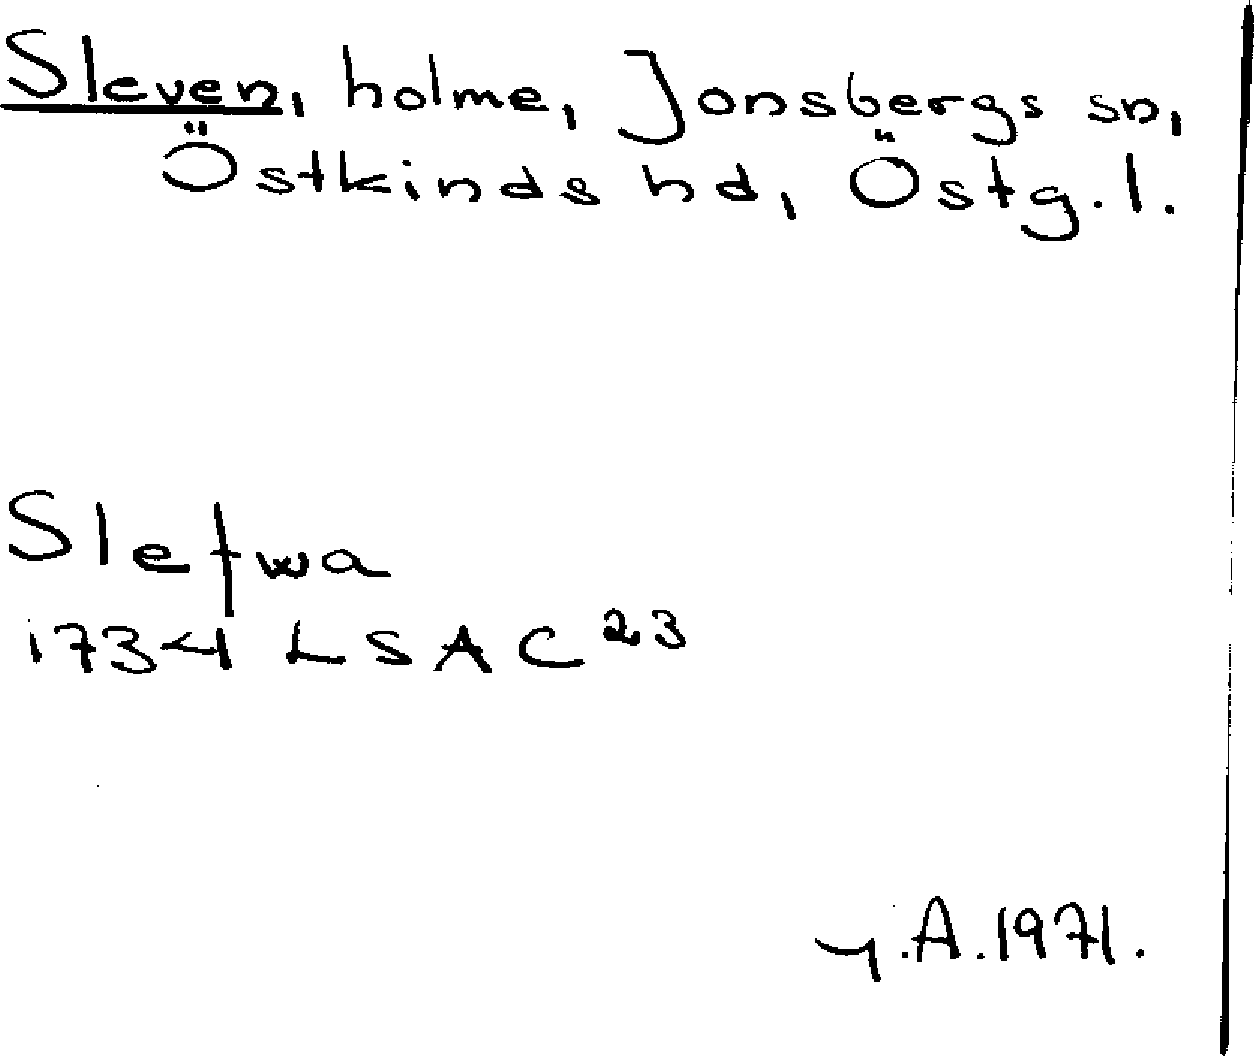 Sleven, holme, Jonsbergs sn,
Östkinds hd, Östg. l.
Slefwa
1734 LSA C 23
Y.A. 1971.